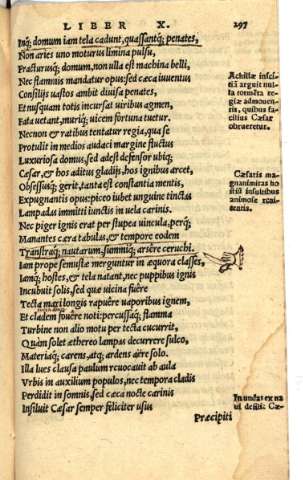 LIBER X. 297
Inq; domum iam tela cadunt, quassantq; penates,
Non aries uno moturus limina pulsu,
Fracturusq; domum, non ulla est machina belli,
Nec flammis mandatur opus: sed cæca iuuentus
Consilijs uastos ambit diuisa penates,
Et nusquam totis incursat uiribus agmen,
Fata uetant, muriq; uicem fortuna tuetur.
Necnon & ratibus tentatur regia, qua se
Protulit in medios audaci margine fluctus
Luxuriosa domus, sed adest defensor ubiq;
Cæsar, & hos aditus gladijs, hos ignibus arcet,
Obsessusq; gerit, tanta est constantia mentis,
Expugnantis opus: piceo iubet unguine tinctas
Lampadas immitti iunctis in uela carinis.
Nec piger ignis erat per stupea uincula, perq;
Manantes cæra tabulas, & tempore eodem
Transtraq; nautarum, summiq; arsere ceruchi.
Iam prope semustæ merguntur in æquora classes,
Iamq; hostes, & tela natant, nec puppibus ignis
Incubuit solis, sed quæ uicina fuere
Tecta mari longis rapuere uaporibus ignem,
Et cladem fouere noti: percussaq; flamma
Turbine non alio motu per tecta cucurrit,
Quàm solet æthereo lampas decurrere sulco,
Materiaq; carens, atq; ardens aëre solo.
Illa lues clausa paulum reuocauit ab aula
Vrbis in auxilium populos, nec tempora cladis
Perdidit in somnos, sed cæca nocte carinis
Insiluit Cæsar semper feliciter usus
Præcipiti
Achillæ insci-
tiā arguit nul-
la tormēta re-
giæ admouen-
tis, quibus fa-
cilius Cæsar
obrueretur.
Cæsaris ma-
gnanimitas ho
stiū insultibus
animose resi-
stentis.
In undas ex na
ui desilit Cæ-